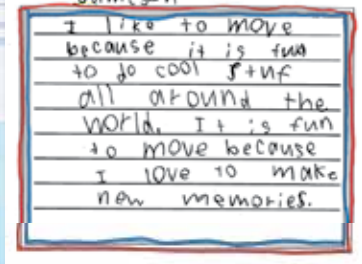 I like to move
because it is fun
to do cool stuf
all around the
world. It is fun
to move because
I love to make
new memories.